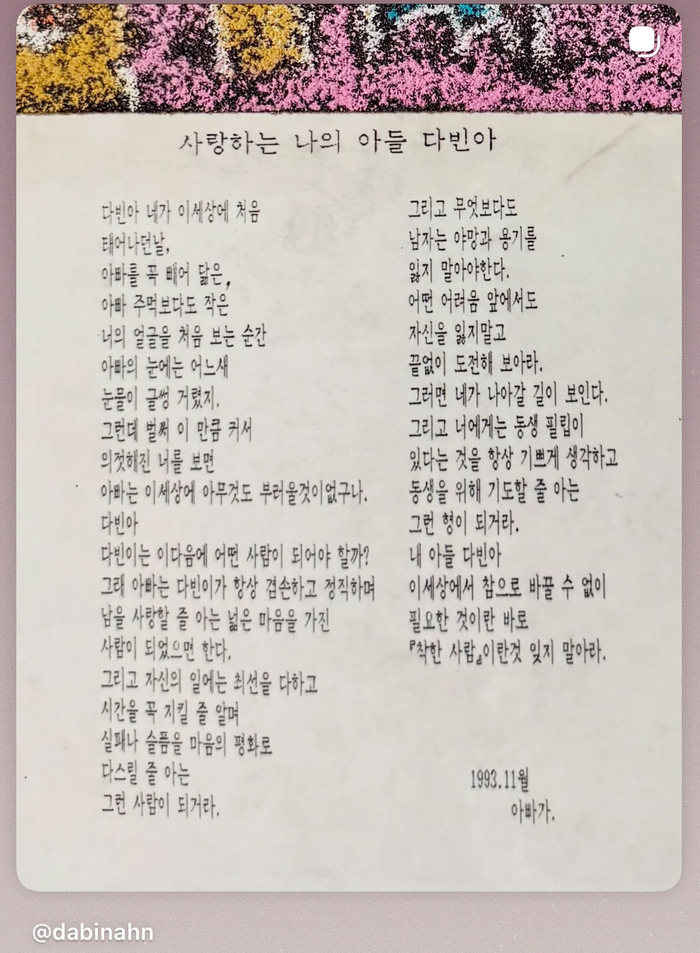 사랑하는 나의 아들 다빈아
다빈아 네가 이세상에 처음
태어나던날,
아빠를 꼭 빼어 닮은,
아빠 주먹보다도 작은
너의 얼굴을 처음 보는 순간
아빠의 눈에는 어느새
눈물이 글썽 거렸지.
그런데 벌써 이 만큼 커서
의젓해진 너를 보면
아빠는 이세상에 아무것도 부러울것이없구나.
다빈아
다빈이는 이다음에 어떤 사람이 되어야 할까?
그래 아빠는 다빈이가 항상 겸손하고 정직하며
남을 사랑할 줄 아는 넓은 마음을 가진
사람이 되었으면 한다.
그리고 자신의 일에는 최선을 다하고
시간을 꼭 지킬 줄 알며
실패나 슬픔을 마음의 평화로
다스릴 줄 아는
그런 사람이 되거라.
그리고 무엇보다도
남자는 야망과 용기를
잃지 말아야한다.
어떤 어려움 앞에서도
자신을 잃지말고
끝없이 도전해 보아라.
그러면 네가 나아갈 길이 보인다.
그리고 너에게는 동생 필립이
있다는 것을 항상 기쁘게 생각하고
동생을 위해 기도할 줄 아는
그런 형이 되거라.
내 아들 다빈아
이세상에서 참으로 바꿀 수 없이
필요한 것이란 바로
『착한 사람』이란것 잊지 말아라.
1993.11월
아빠가.
@dabinahn